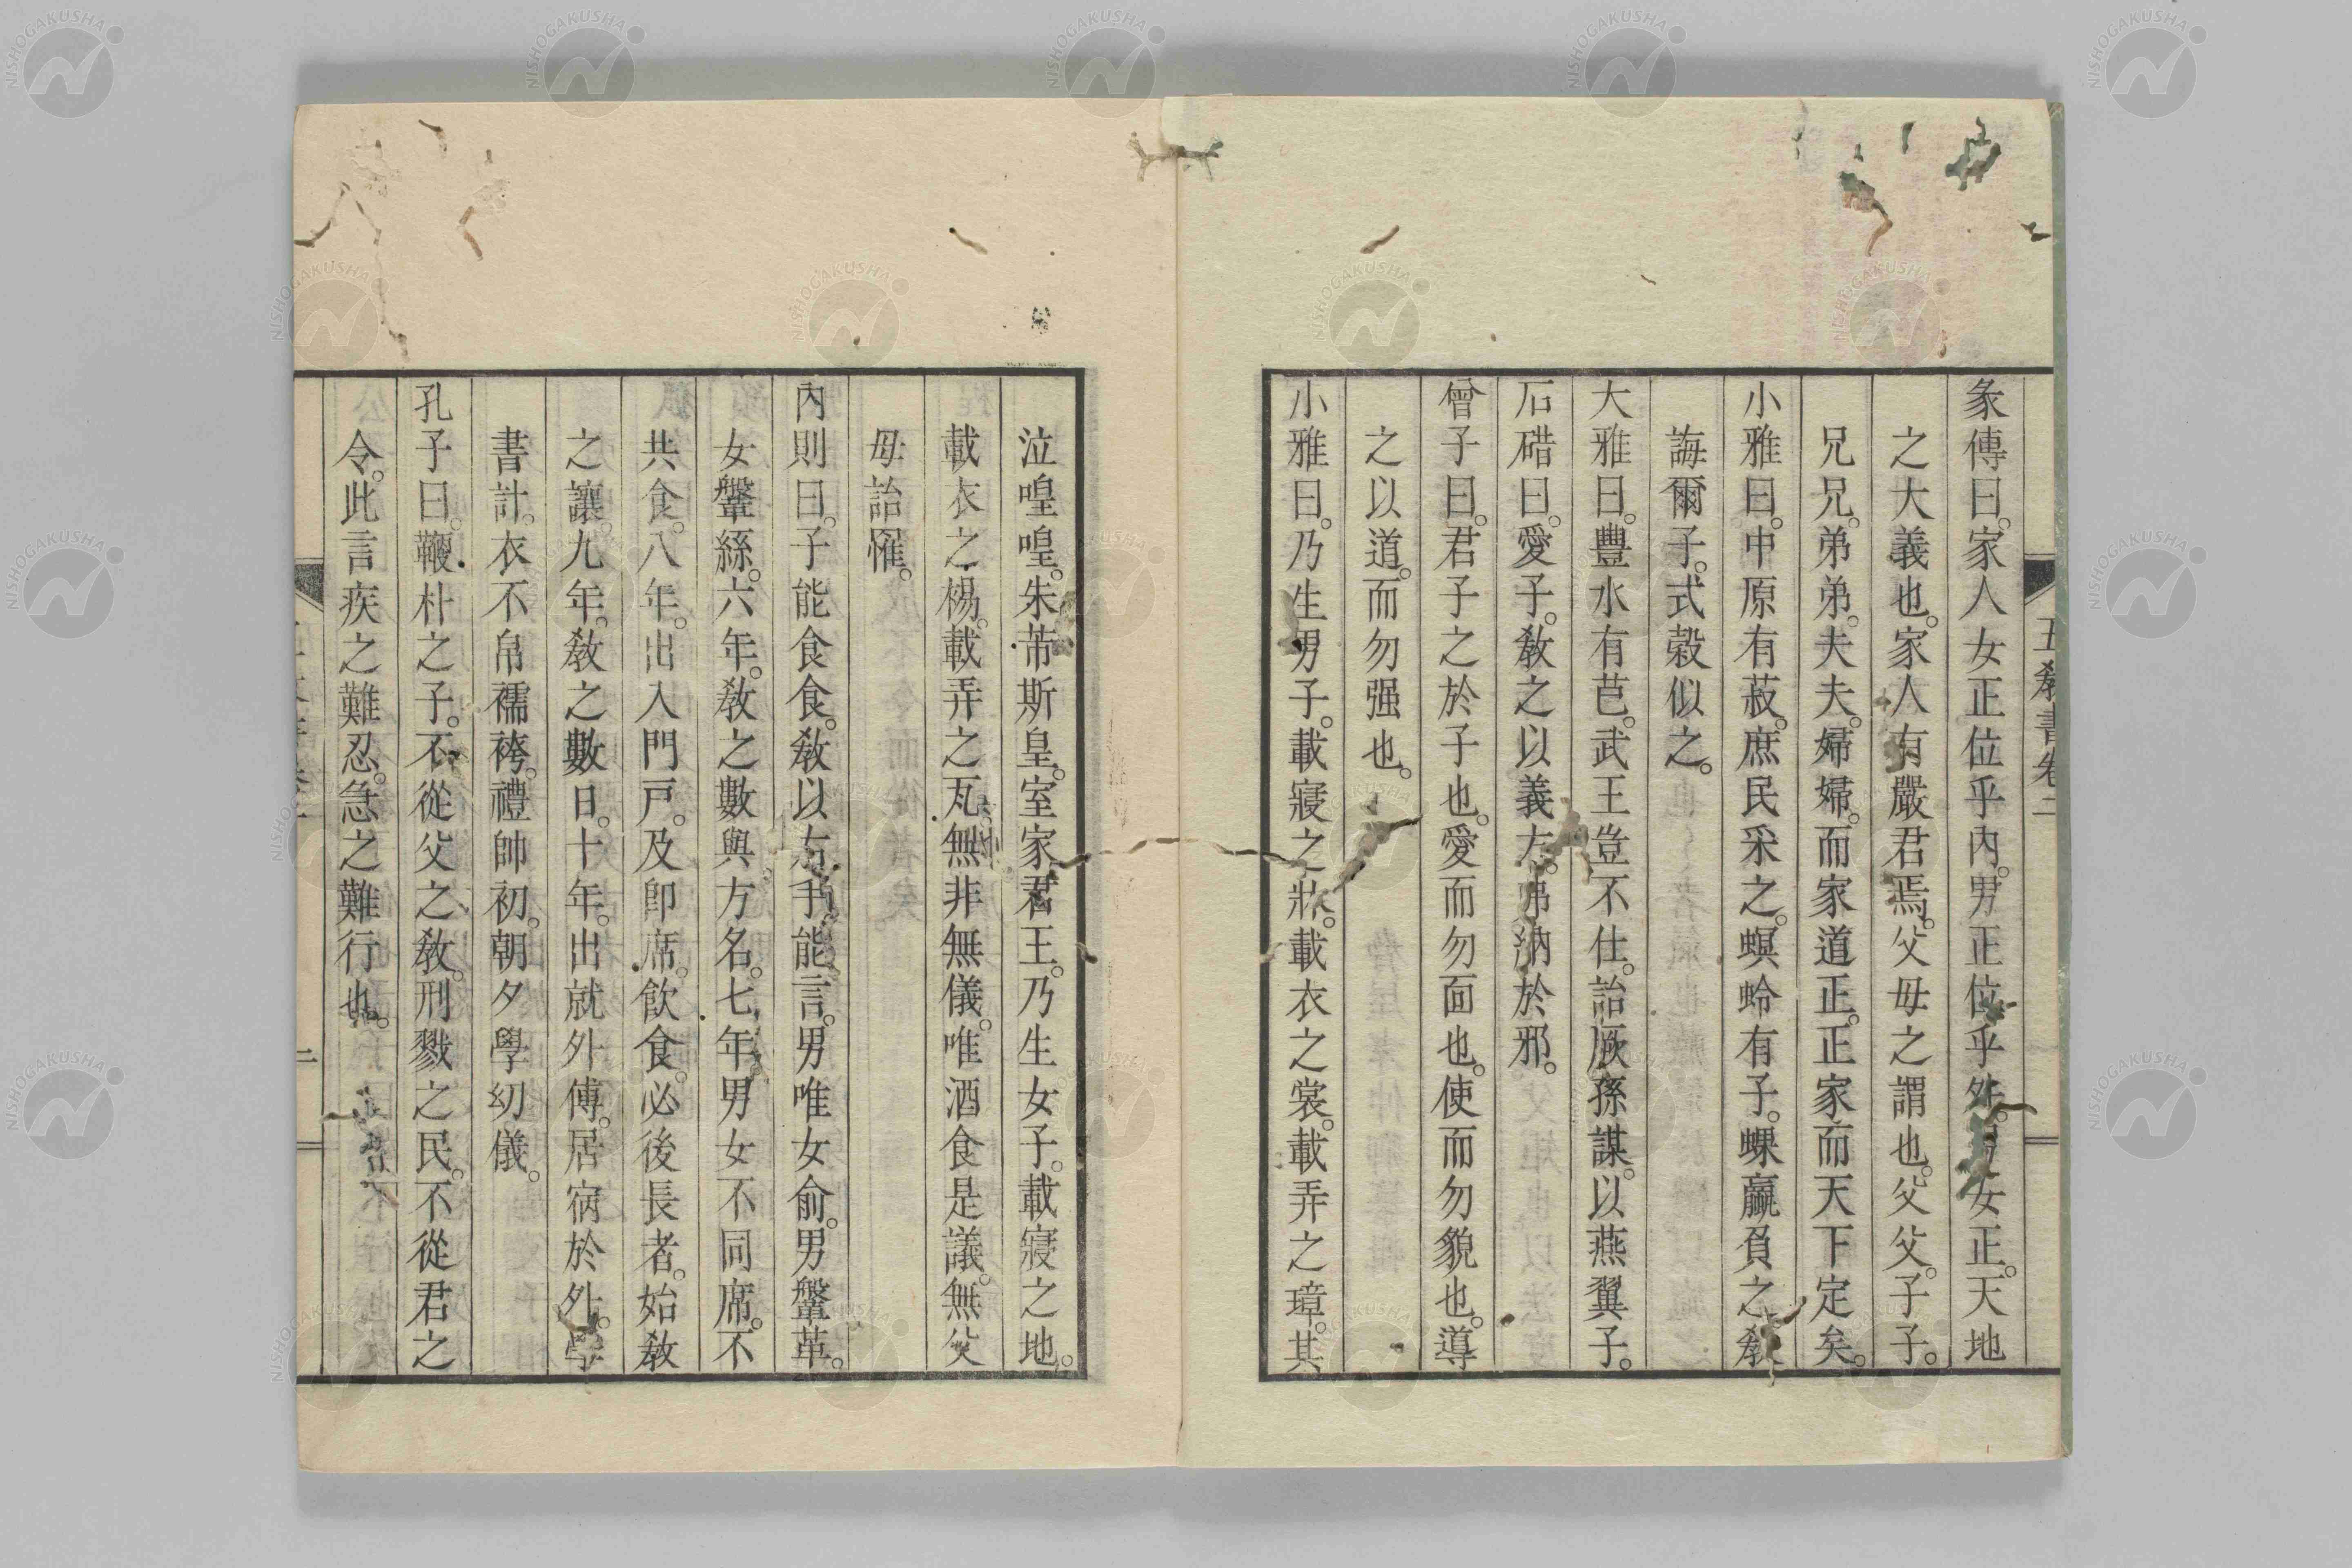 五敎書卷二
彖傳曰。家人女正位乎內。男正位乎外。男女正。天地
之大義也。家人有嚴君焉。父母之謂也。父父。子子。
兄兄。弟弟。夫夫。婦婦。而家道正。正家而天下定矣。
小雅曰。中原有菽。庶民采之。螟蛉有子。蜾蠃負之。敎
誨爾子。式榖似之。
大雅曰。豐水有芑。武王豈不仕。詒厥孫謀。以燕翼子。
石碏曰。愛子。敎之以義方。弗納於邪。
曾子曰。君子之於子也。愛而勿面也。使而勿貌也。導
之以道。而勿强也。
小雅曰。乃生男子。載寢之牀。載衣之裳。載弄之璋。其
泣喤喤。朱芾斯皇。室家君王。乃生女子。載寢之地。
載衣之裼。載弄之瓦。無非無儀。唯酒食是議。無父
母詒罹。
內則曰。子能食食。敎以右手。能言。男唯女俞。男鞶革。
女鞶絲。六年。敎之數與方名。七年男女不同席。不
共食。八年。出入門戸。及卽席。飮食。必後長者。始敎
之讓。九年。敎之數日。十年。出就外傅。居宿於外。學
書計。衣不帛襦袴。禮帥初。朝夕學幼儀。
孔子曰。鞭朴之子。不從父之敎。刑戮之民。不從君之
令。此言疾之難忍。急之難行也。
二
NISHOGAKUSHA